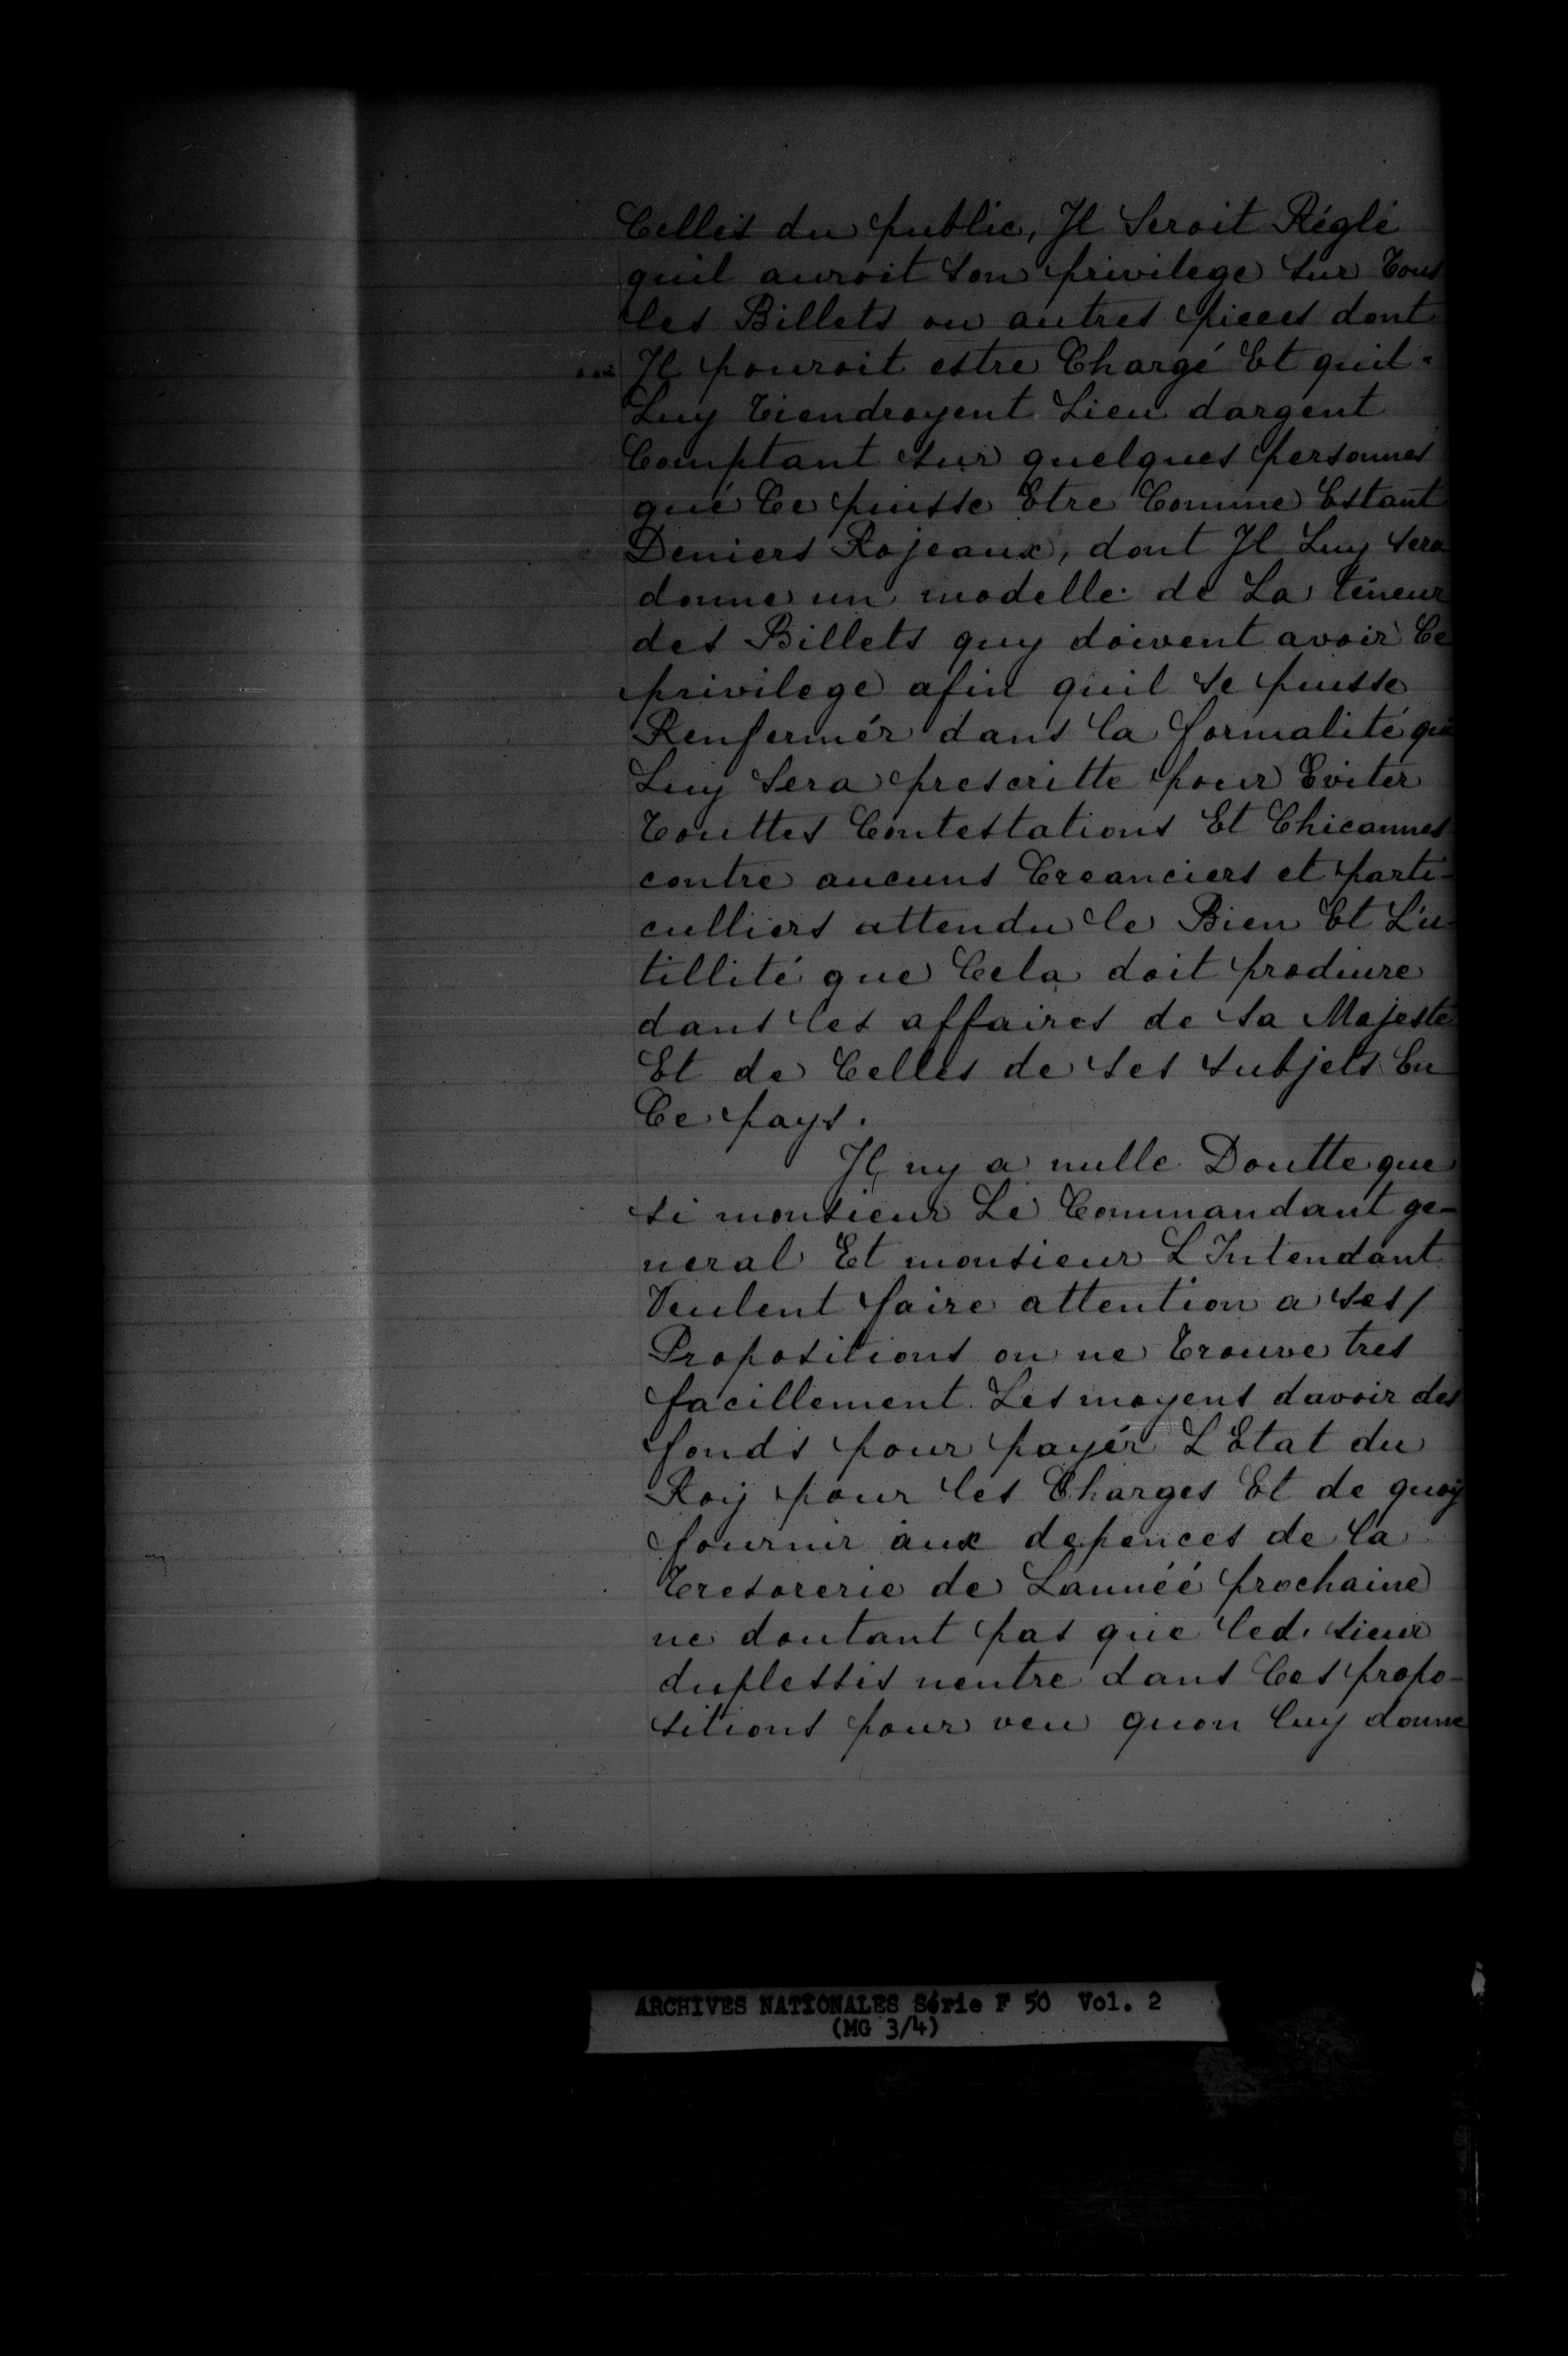 Celles du public, Il Seroit Réglé
quil auroit son privilege sur Tous
les Billets ou autres pieces dont
Il pouroit estre Chargé Et quil
Luy Tiendroyent Lieu dargent
Comptant sur quelques personnes
que Ce puisse Etre Comme Estant
Deniers Rojeaux, dont Il Luy sera
donne un modelle de La téneur
des Billets quy doivent avoir Ce
privilege afin quil se puisse
Renfermér dans la formalité qui
Luy Sera prescritte pour Eviter
Touttes Contestations Et Chicannes
contre aucuns Creanciers et parti-
culliers attendu le Bien Et L'u-
tillité que Cela doit produire
dans les affaires de sa Majesté
Et de Celles de ses subjets En
Ce pays.
Il ny a nulle Doutte que
si monsieur Le Commandant ge-
neral Et monsieur L Intendant
Veulent faire attention a ses/
Propositions on ne Trouve tres
facillement Les moyens davoir des
fonds pour payér L Etat du
Roy pour les Charges Et de quoy
fournir aux depences de la
Tresorerie de Lannéé prochaine
ne doutant pas que led. sieur
duplessis nentre dans Ces propo-
sitions pour veu quon luy donne
ARCHIVES NATIONALES Série F 50 Vol. 2
(MG 3/4)